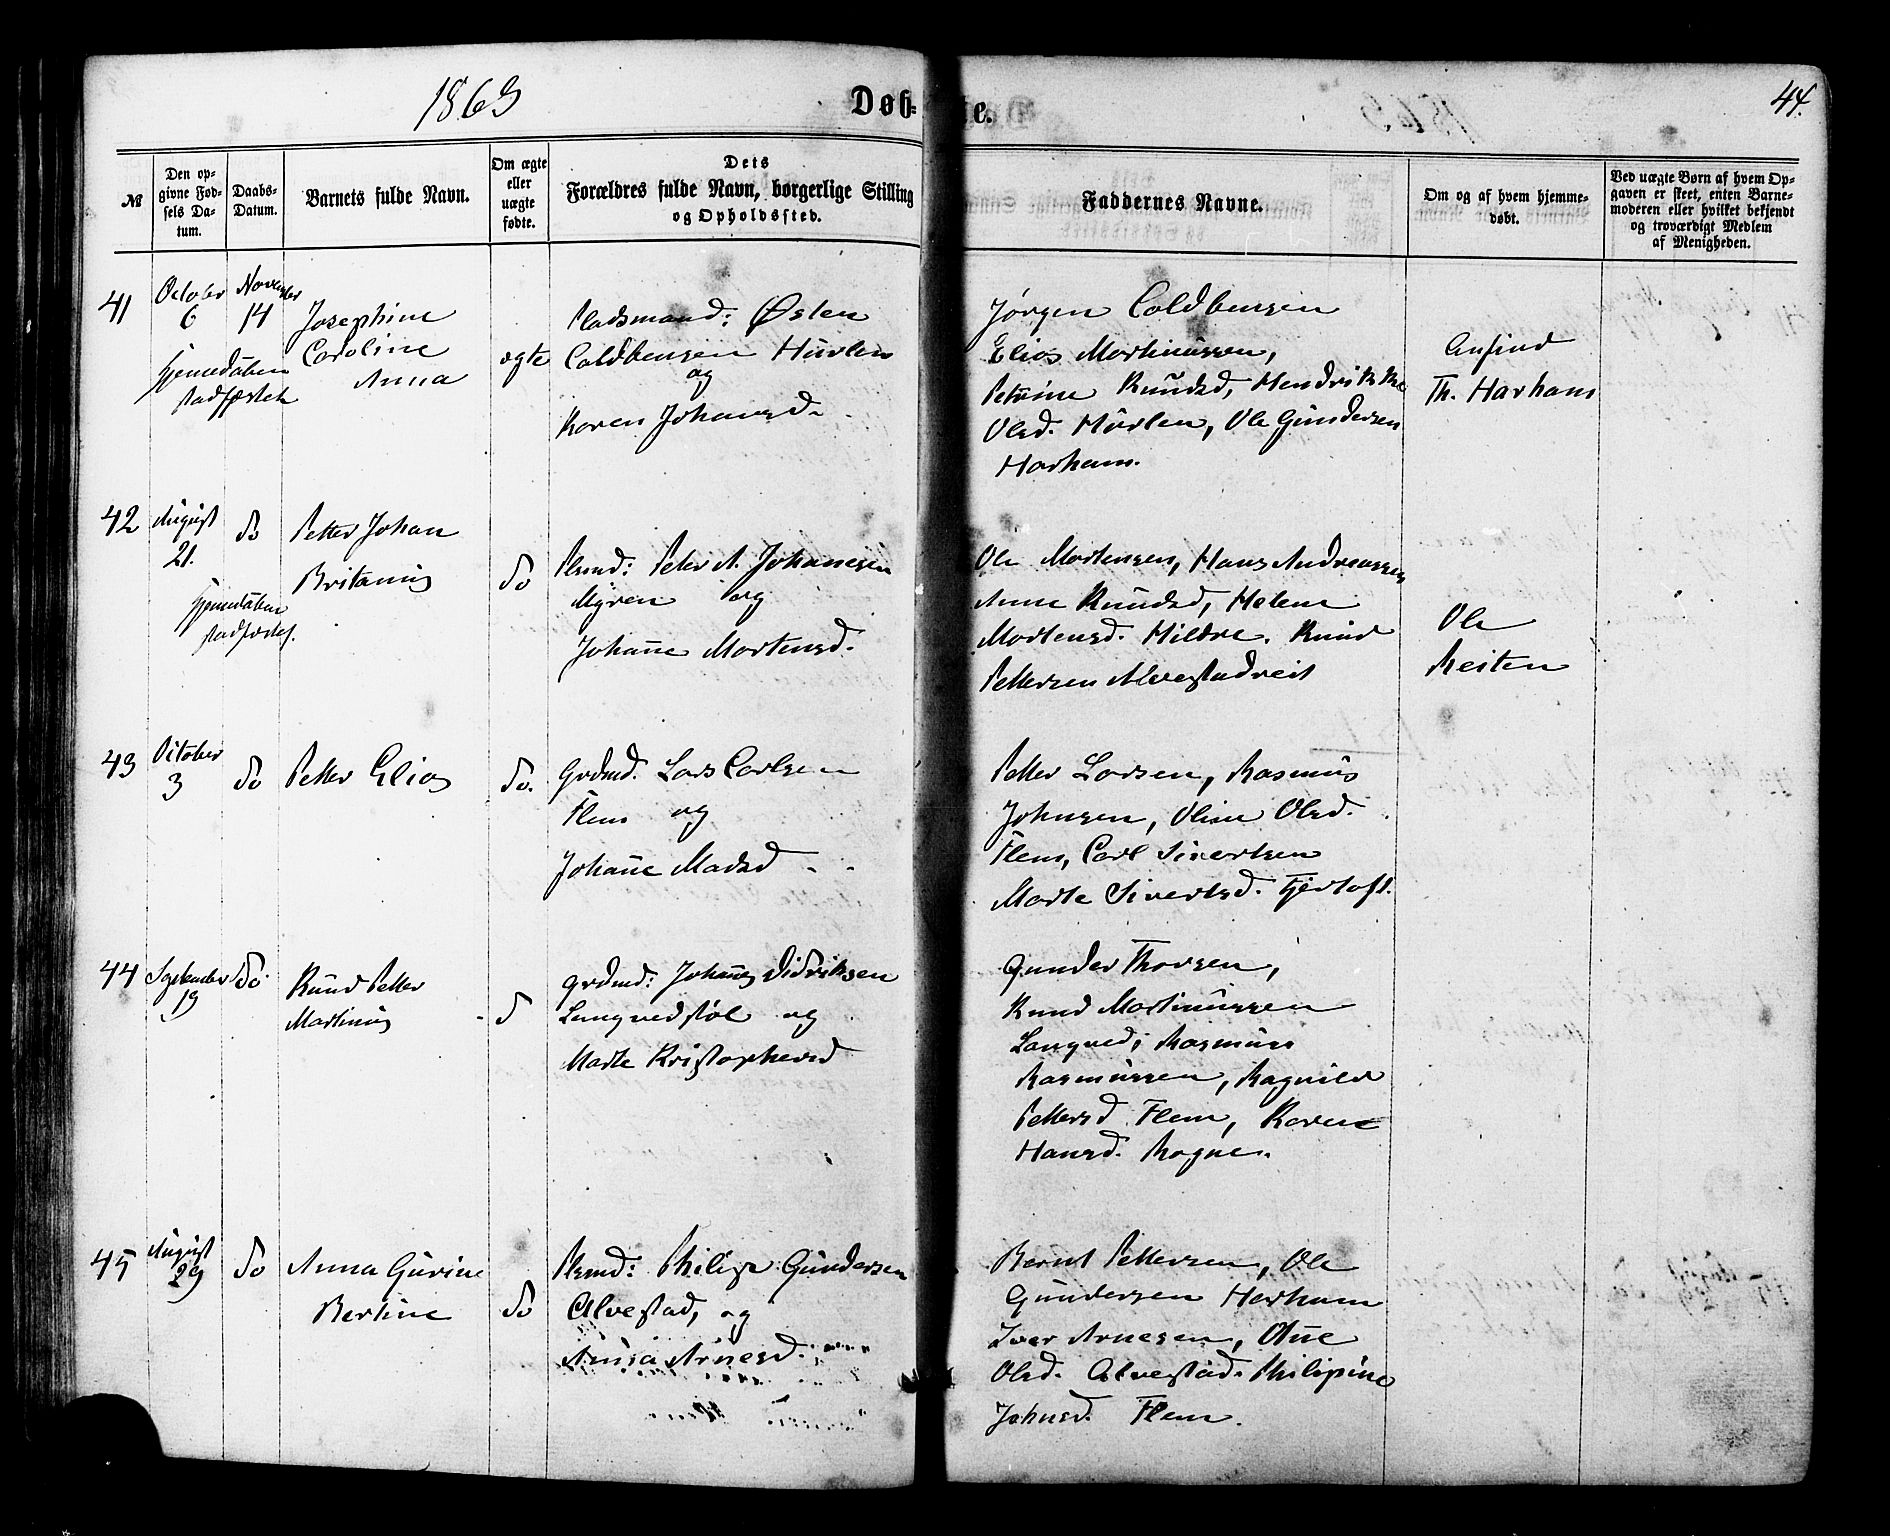 1869
Døb-
te.
44.
№
Den op-
givne Fød-
sels Da-
tum.
Daabs-
Datum.
Barnets fulde Navn.
Om ægte
eller
uægte
fødte.
Dets
Forældres fulde Navn, borgerlige Stilling
og Opholdssted.
Faddernes Navne.
Om og af hvem hjemme-
døbt.
Ved uægte Børn af hvem Op-
gaven er skeet, enten Barne-
moderen eller hvilket bekjendt
og troværdigt Medlem
af Menigheden.
41
October
6
November
14
hjemedåben
stadfæstet
Josephine
Caroline
Anna
ægte
Pladsmand: Østen
Coldbensen Hurlen
og
Karen Johansd.
Jørgen Coldbensen
Elias Martinussen,
Petrine Knudsd, Hendrikke
Olsd. Hurlen, Ole Gundersen
Harham.
Anfind
Th. Harham
42
August
21.
do
hjemedåben
stadfæstet.
Petter Johan
Britanius
do
Plsmd: Peter A. Johanesen
Myren og
Johanne Mortensd.
Ole Mortensen, Hans Andreassen
Anne Knudsd, Helene
Mortensd. Hildre. Knud
Pettersen Alvestadreit
Ole
Reiten
43
October
3
do
Petter Elias
do.
Grdmd. Lars Carlsen
Flem og
Johanne Madsd
Petter Larsen, Rasmus
Johnsen, Oline Olsd.
Flem, Carl Sivertsen
Marte Sivertsd. Fjertoft.
44
September
19
do
Knud Petter
Martinus
d
grdmd: Johannes Didriksen
Langvedstøl og
Marte Kristophersd
Gunder Thorsen,
Knud Martinussen
Langved; Rasmus
Rasmussen, Ragnild
Pettersd Flem, Karen
Hansd. Rogne.
45
August
29
do
Anna Gurine
Bertine
do
Plsmd: Philip Gundersen
Alvestad, og
Anna Arnesd.
Bernt Pettersen, Ole
Gundersen Harham
Iver Arnesen, Ane
Olsd. Alvestad. Philipine
Johnsd. Flem.